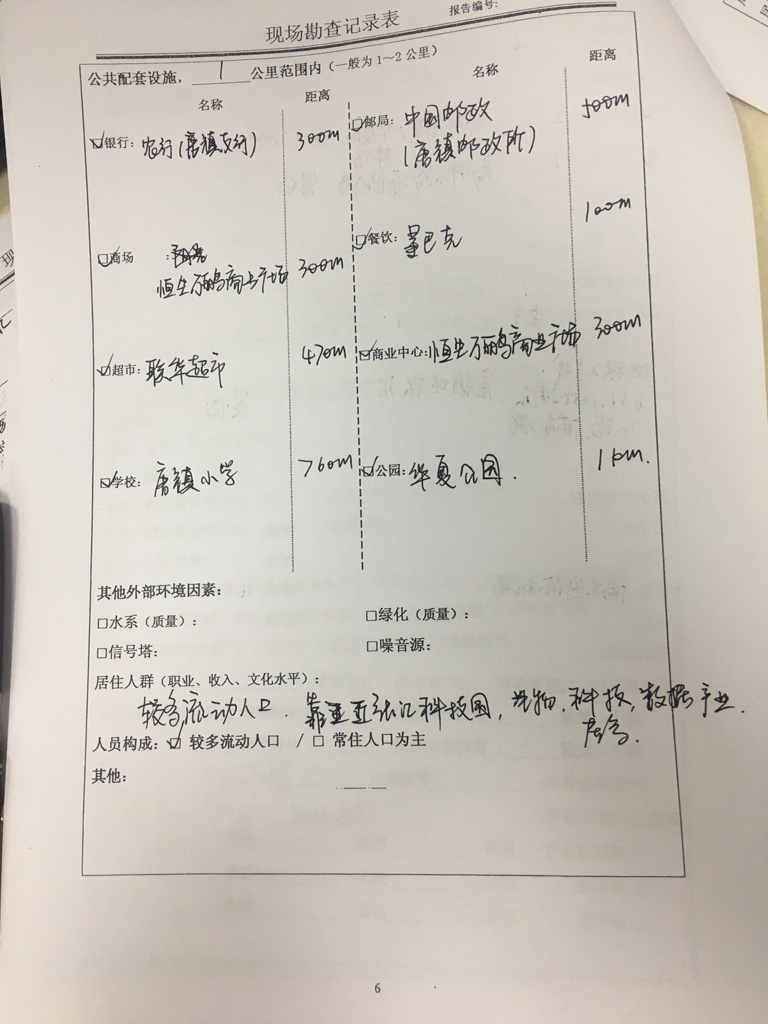 报告编号:
现场勘查记录表
公共配套设施，1公里范围内（一般为1～2公里）
名称 距离 名称 距离
☑银行：农行(唐镇支行) 300m ☑邮局：中国邮政 500m
(唐镇邮政所)
☑商场： ☑餐饮：星巴克 100m
恒生万鹂商业广场 300m
☑超市：联华超市 470m ☑商业中心：恒生万鹂商业广场 300m
☑学校：唐镇小学 760m ☑公园：华夏公园. 1km.
其他外部环境因素：
□水系（质量）： □绿化（质量）：
□信号塔： □噪音源：
居住人群（职业、收入、文化水平）：
较多流动人口. 靠 张江科技园, 科技, 数据产业.
人员构成：☑ 较多流动人口 / □ 常住人口为主
其他： ——
6